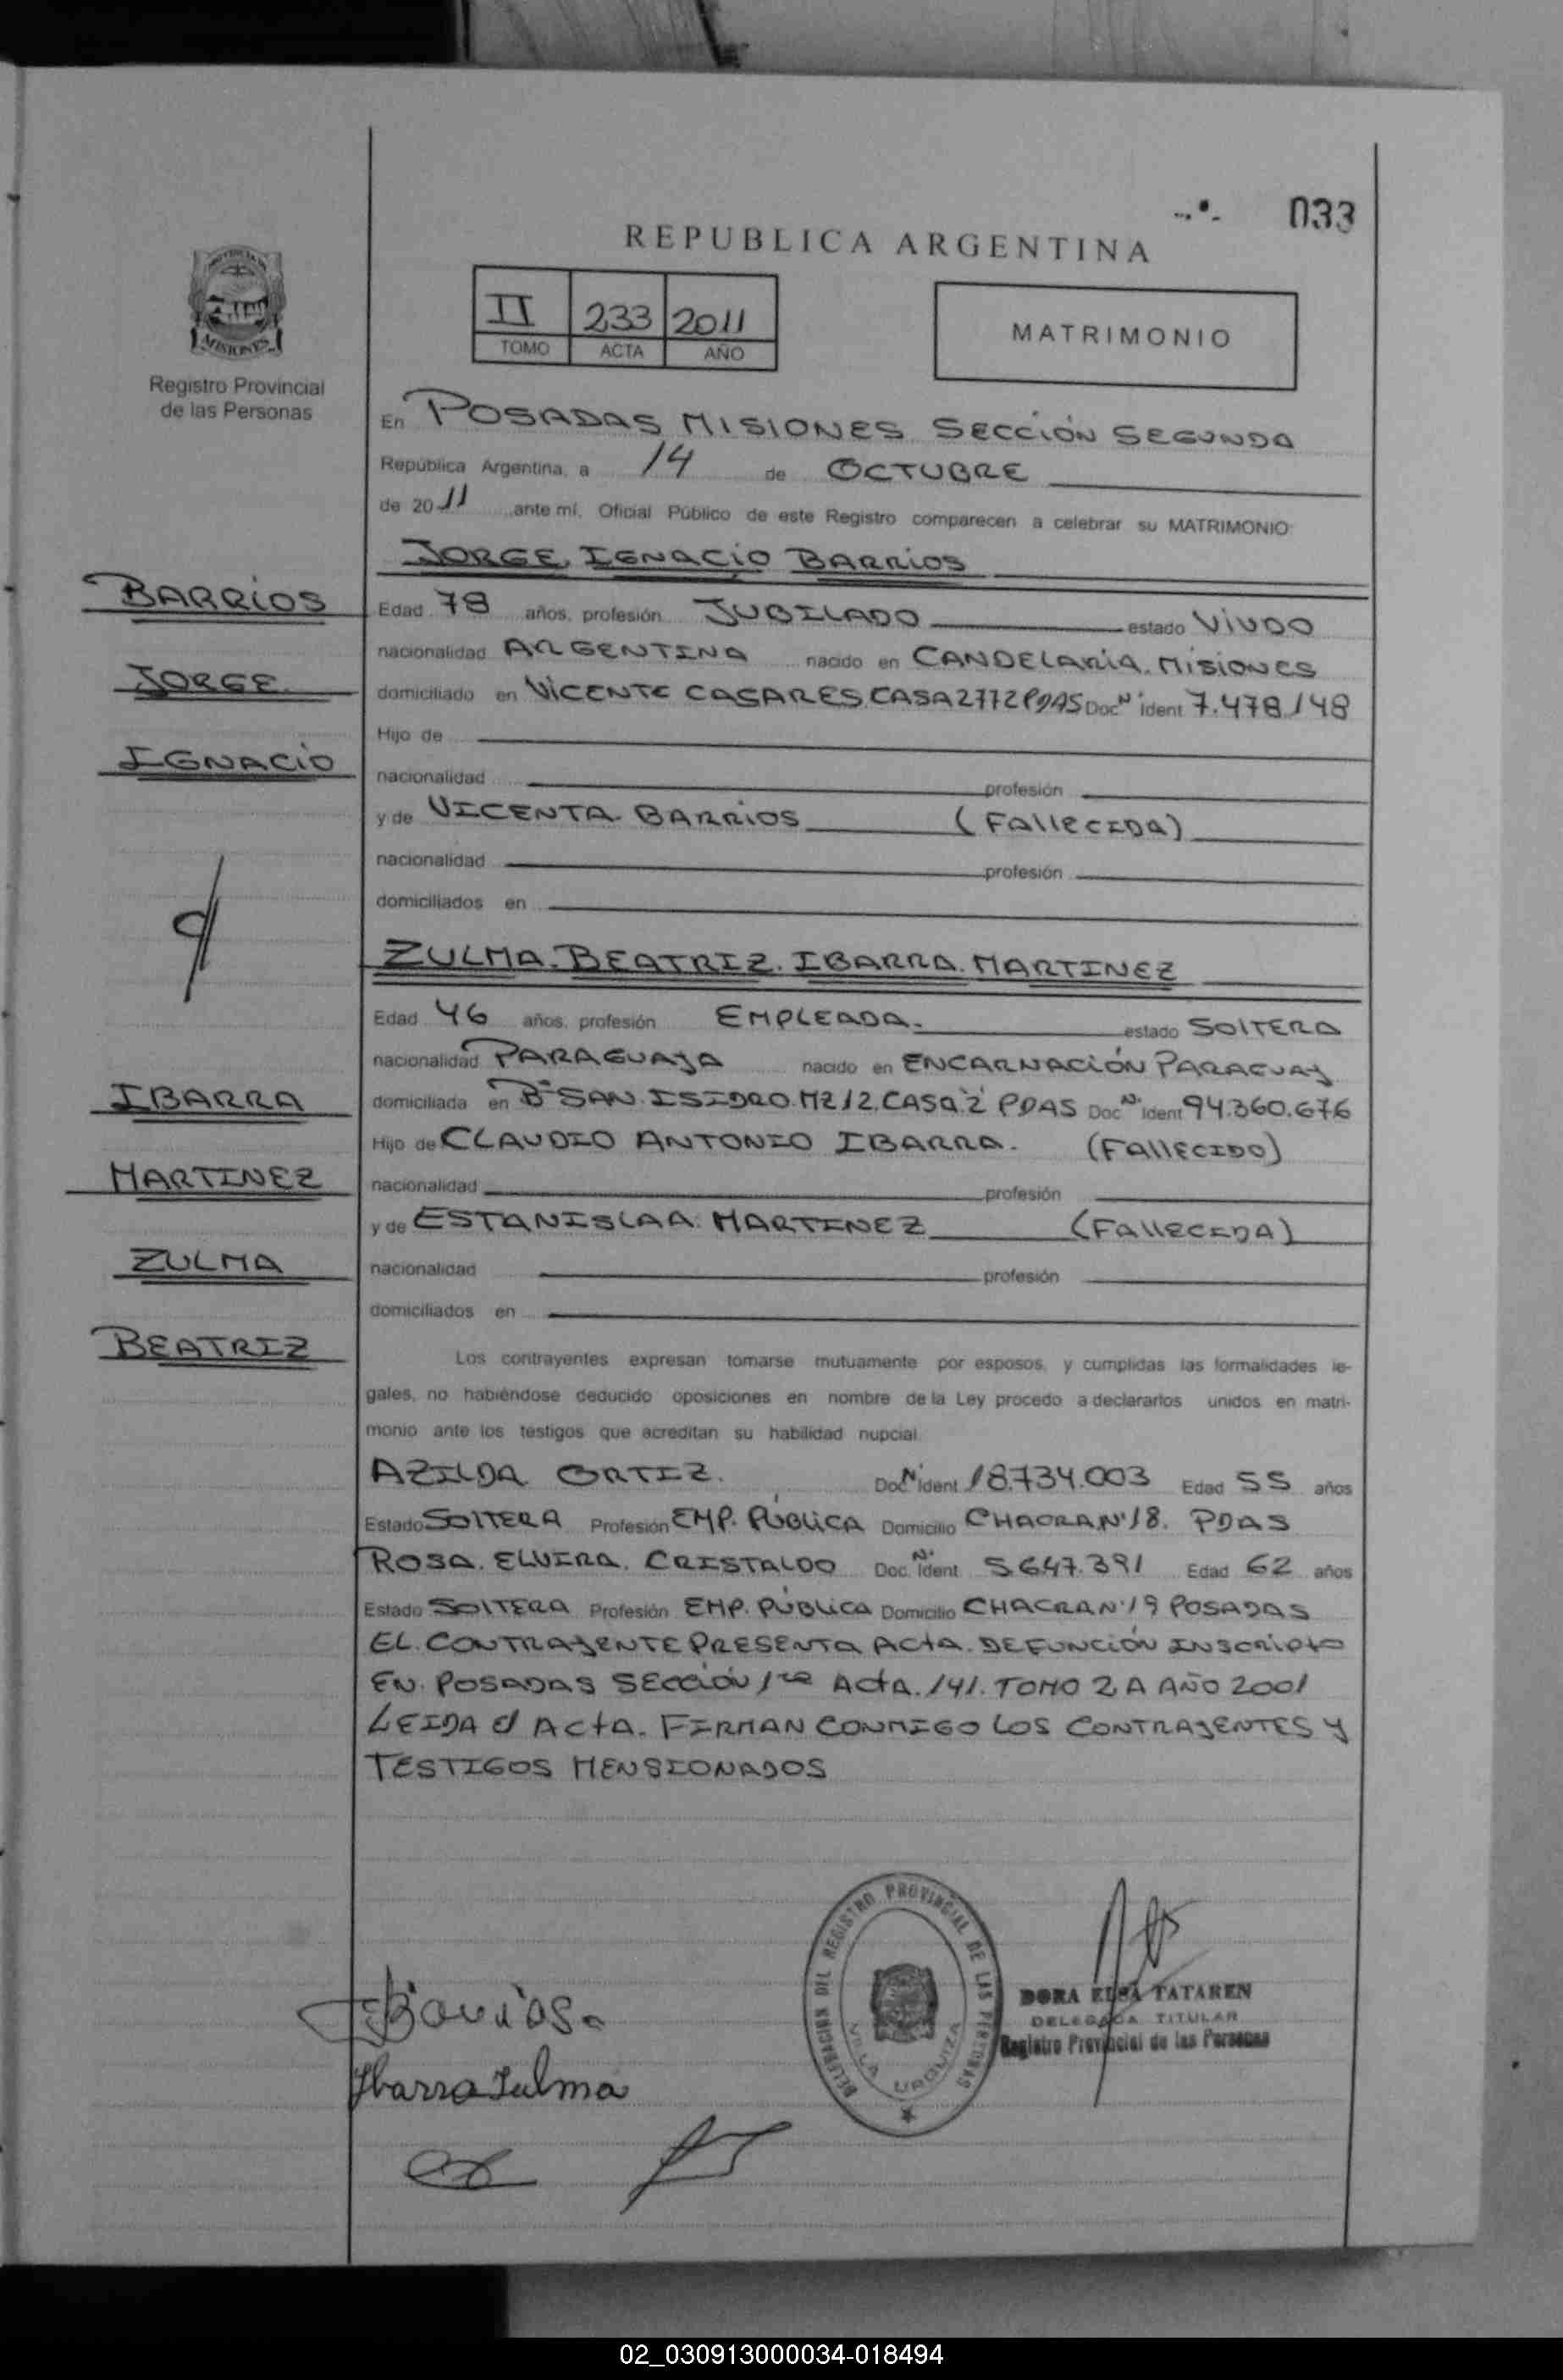 033
REPUBLICA ARGENTINA
II 233 2011
TOMO ACTA AÑO
MATRIMONIO
MISIONES
Registro Provincial
de las Personas
En POSADAS MISIONES SECCIÓN SEGUNDA
República Argentina, a 14 de OCTUBRE
de 2011 ante mí, Oficial Público de este Registro comparecen a celebrar su MATRIMONIO:
JORGE IGNACIO BARRIOS
BARRIOS
JORGE
IGNACIO
Edad 78 años, profesión JUBILADO estado VIUDO
nacionalidad ARGENTINA nacido en CANDELARIA. MISIONES
domiciliado en VICENTE CASARES CASA 2772 PDAS Doc N° ident 7.478.148
Hijo de
nacionalidad profesión
y de VICENTA BARRIOS (FALLECIDA)
nacionalidad profesión
domiciliados en
ZULMA. BEATRIZ. IBARRA. MARTINEZ
Edad 46 años, profesión EMPLEADA. estado SOLTERA
nacionalidad PARAGUAYA nacido en ENCARNACIÓN PARAGUAY
IBARRA
MARTINEZ
ZULMA
BEATRIZ
domiciliada en B° SAN. ISIDRO. MZ 12. CASA 2 PDAS Doc N° ident 94.360.676
Hijo de CLAUDIO ANTONIO IBARRA. (FALLECIDO)
nacionalidad profesión
y de ESTANISLAA MARTINEZ (FALLECIDA)
nacionalidad profesión
domiciliados en
Los contrayentes expresan tomarse mutuamente por esposos, y cumplidas las formalidades le-
gales, no habiéndose deducido oposiciones en nombre de la Ley procedo a declararlos unidos en matri-
monio ante los testigos que acreditan su habilidad nupcial.
AZILDA ORTIZ. Doc N° ident 18.734.003 Edad 55 años
Estado SOLTERA Profesión EMP. PÚBLICA Domicilio CHACRA N°18. PDAS
ROSA. ELVIRA. CRISTALDO Doc. N° ident 5.647.391 Edad 62 años
Estado SOLTERA Profesión EMP. PÚBLICA Domicilio CHACRA N°19 POSADAS
EL. CONTRAYENTE PRESENTA ACTA. DEFUNCIÓN INSCRIPTO
EN. POSADAS SECCIÓN 1ra ACTA. 141. TOMO 2 A AÑO 2001
LEIDA el ACTA. FIRMAN CONMIGO LOS CONTRAYENTES Y
TESTIGOS MENSIONADOS
DELEGACION DEL REGISTRO PROVINCIAL DE LAS PERSONAS
VILLA URQUIZA
DORA ELSA TATAREN
DELEGADA TITULAR
Registro Provincial de las Personas
Barrios.
Ibarra Zulma
02_030913000034-018494